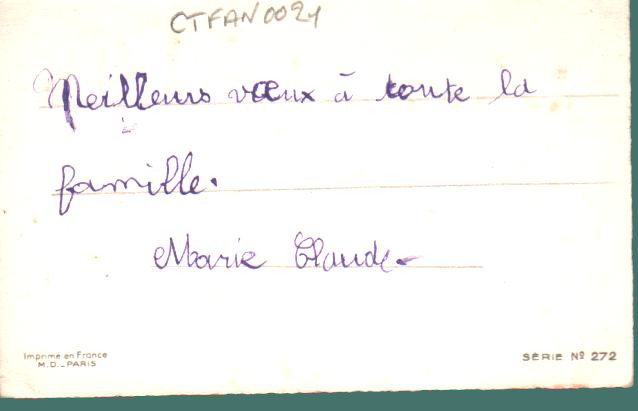 CTFAN0021
Meilleurs vœux à toute la
famille.
Marie Claude.
Imprimé en France
M.D._PARIS
SÉRIE Nº 272